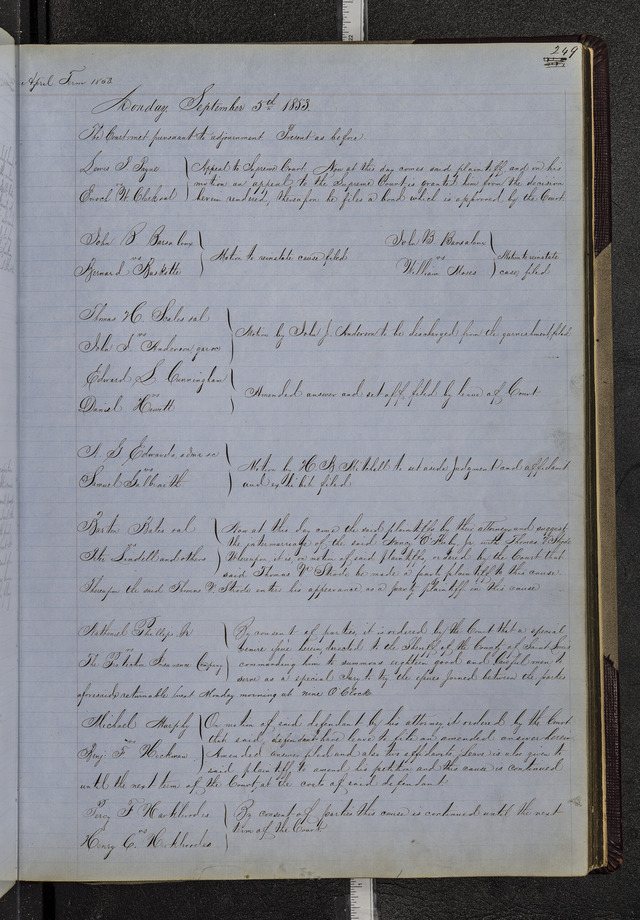 249
April Term 1853
Monday, September 5th 1853.
The Court met pursuant to adjournment Present as before
Lewis J.
vs
Enoch W.
Appeal to Supreme Court Now at this day comes said plaintiff and on his
motion an appeal to the Supreme Court is granted him from the decision
herein rendered, thereupon he files a bond which is approved by the Court
John B
vs
Bernard
Motion to reinstate cause filed
John B
vs
William
Motion to reinstate
case filed
Thomas H. Scales et al
vs
John J. Anderson garn
Motion by John J. Anderson to be discharged from the garnishment filed
Edward L Cunningham
vs
Daniel Hewett
Amended answer and set off filed by leave of Court
A G Edwards admr &c
vs
Samuel Galbraith
Motion by H R Mitchell to set aside Judgment and affidavit
and exhibit filed
Barton Bates et al
vs
Peter Lindell and others
Now at this day come the said plaintiffs by their attorney and suggest
the intermarriage of the said Nancy O with Thomas V Strode
Whereupon it is, on motion of said plaintiffs, ordered by the Court that
said Thomas V Strode be made a party plaintiff to this cause
Thereupon the said Thomas V. Strode enters his appearance as a party plaintiff in this cause
Nathaniel Phillips Jr
vs
The Protection Insurance Company
By consent of parties, it is ordered by the Court that a special
venire issue herein directed to the Sheriff of the County of Saint Louis
commanding him to summons eighteen good and lawful men to
serve as a special Jury to try the issues joined between the parties
aforesaid; returnable next Monday morning at nine O'Clock
Michael Murphy
vs
Benj F. Hickman
On motion of said defendant by his attorney it ordered by the Court
that said defendant have leave to file an amended answer herein
Amended answer filed and also two affidavits, Leave is also given to
said plaintiff to amend his petition and this cause is continued
until the next term of the Court, at the costs of said defendant
Percy F
vs
Henry C.
By consent of parties this cause is continued until the next
term of the Court